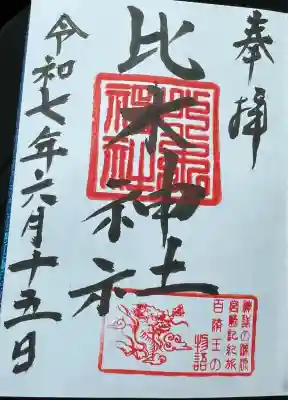 奉拝
比木神社
令和七年六月十五日
神話の源流
宮崎記紀旅
百済王の
物語